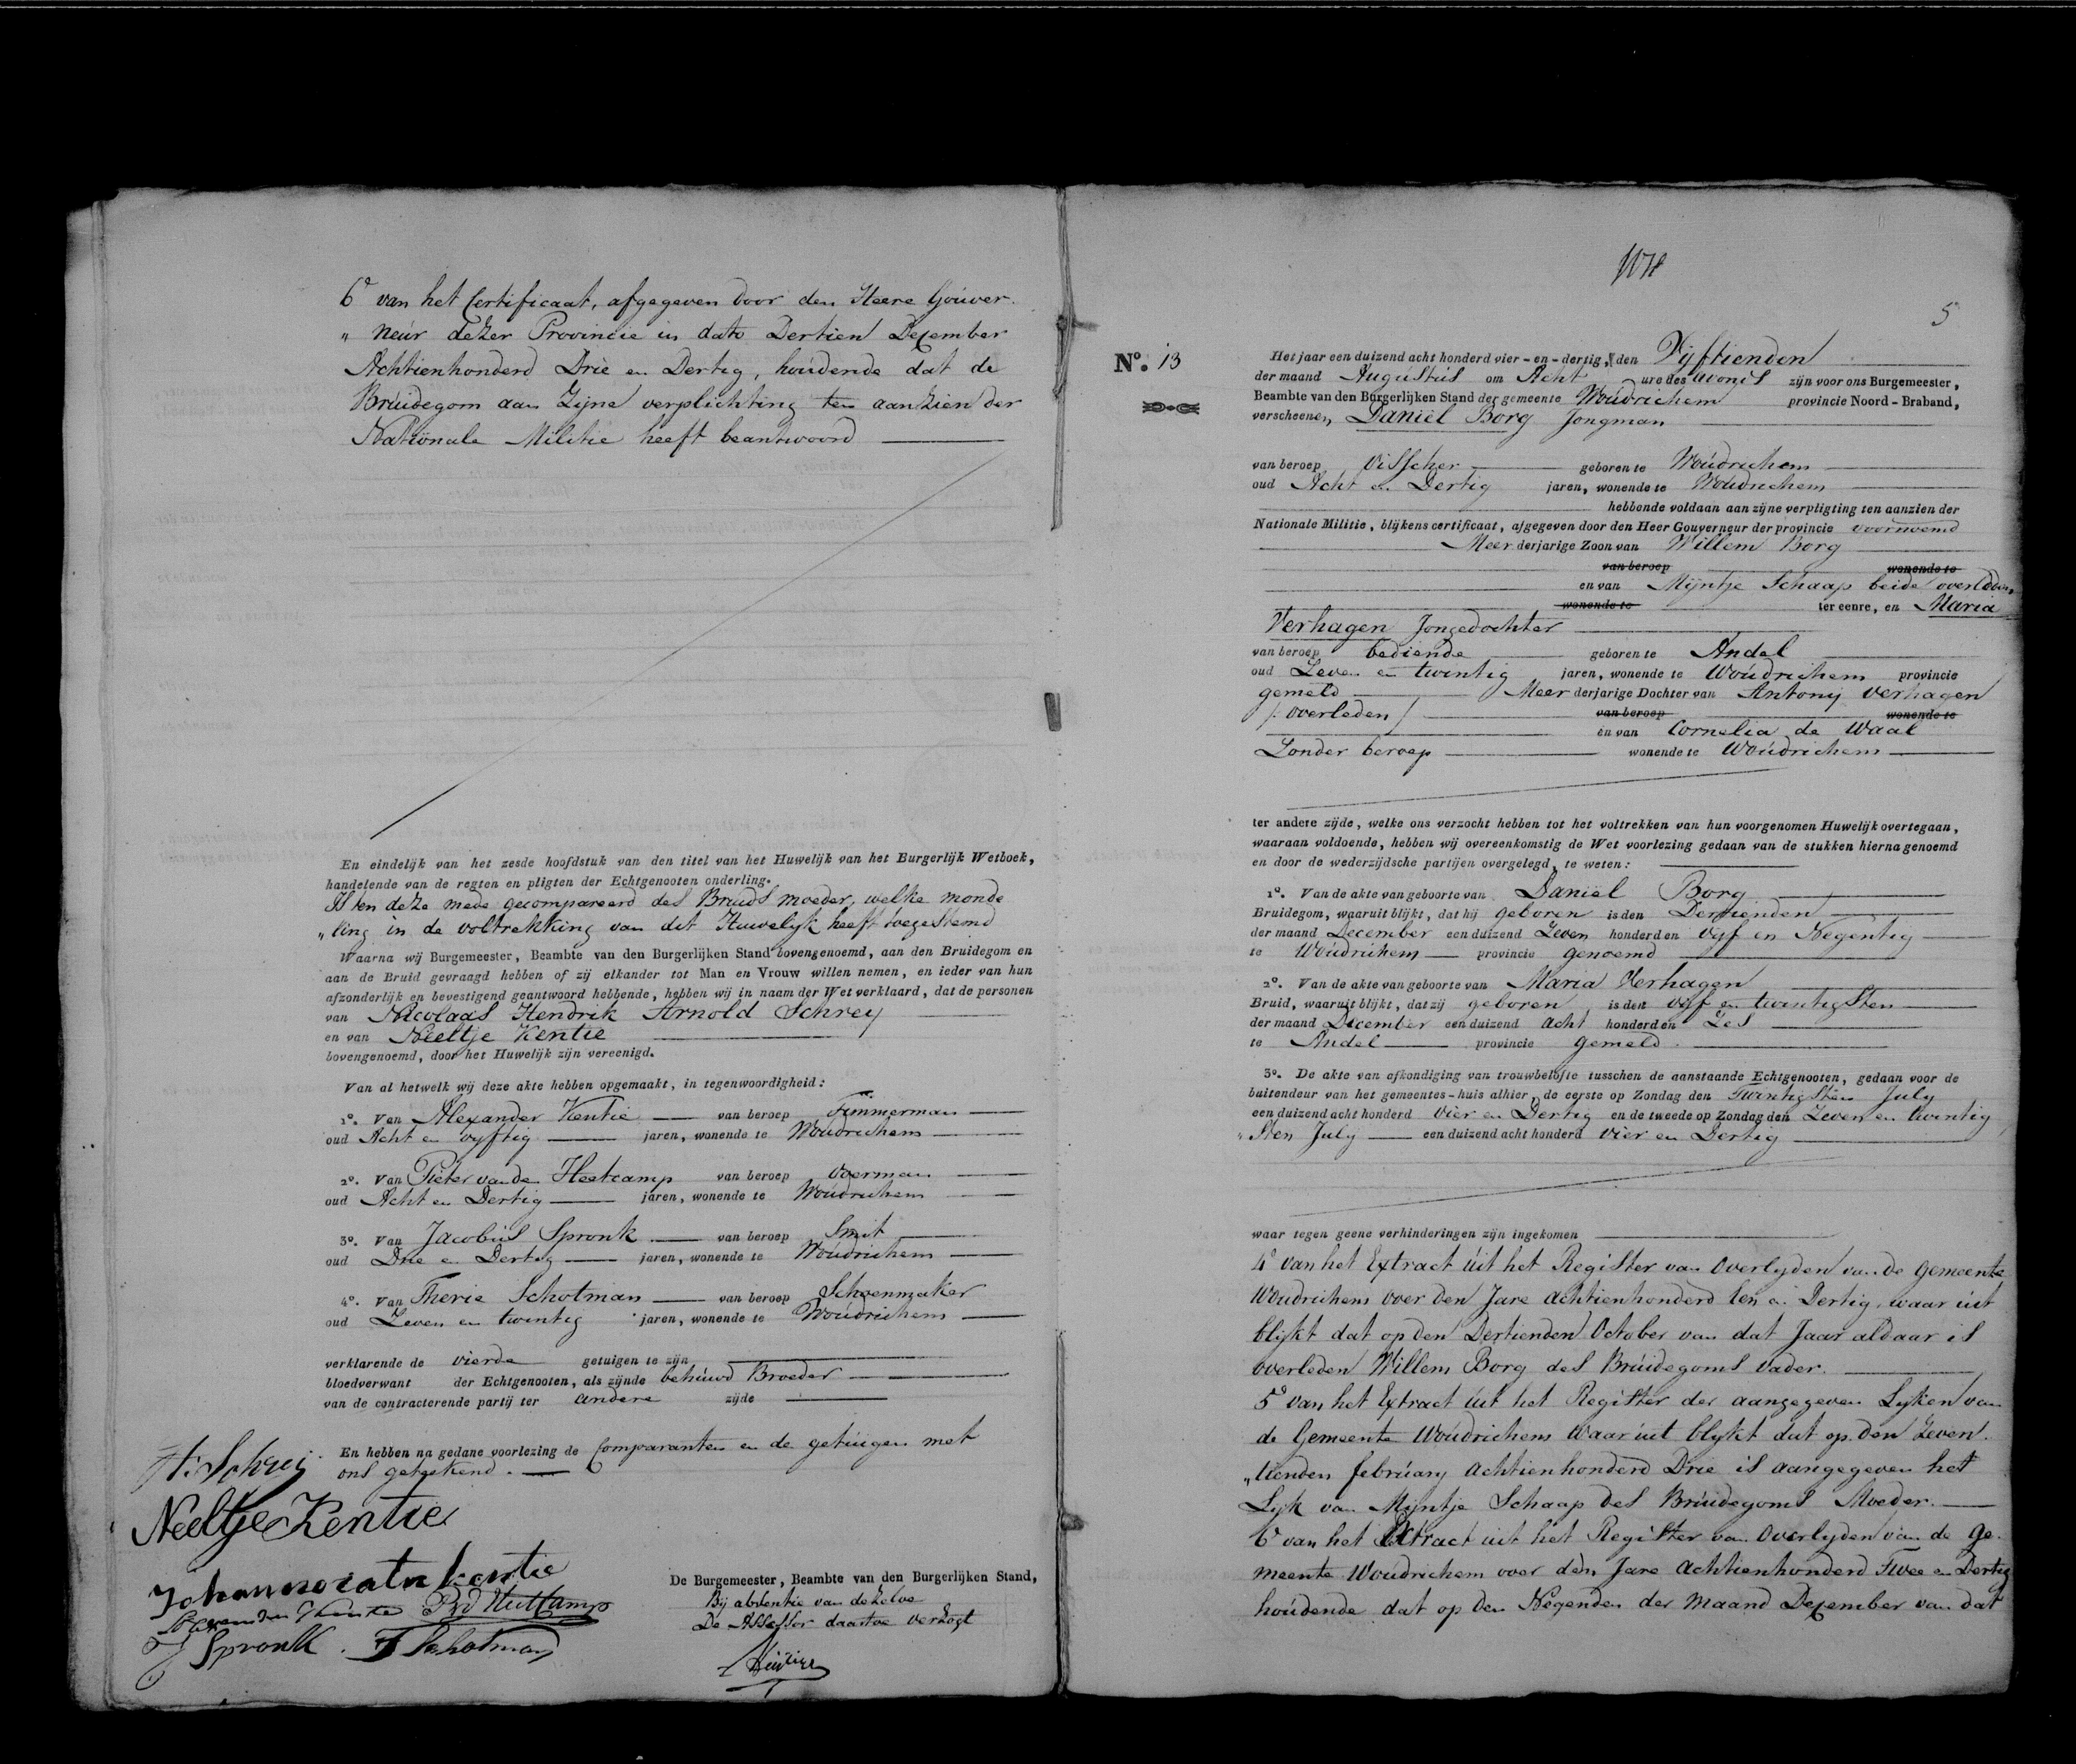 6o van het Certificaat, afgegeven door den Heere Gouver-
" neur dezer Provincie in dato Dertien December
Achtienhonderd Drie en Dertig, houdende dat de
Bruidegom aan Zijne verplichting ten aanzien der
Nationale Militie heeft beantwoord
En eindelijk van het zesde hoofdstuk van den titel van het Huwelijk van het Burgerlijk Wetboek,
handelende van de regten en pligten der Echtgenooten onderling.
Is ten deze mede gecompareerd des Bruids moeder, welke monde
" ling in de voltrekking van dit Huwelijk heeft toegestemd
Waarna wij Burgemeester, Beambte van den Burgerlijken Stand bovengenoemd, aan den Bruidegom en
aan de Bruid gevraagd hebben of zij elkander tot Man en Vrouw willen nemen, en ieder van hun
afzonderlijk en bevestigend geantwoord hebbende, hebben wij in naam der Wet verklaard, dat de personen
van Nicolaas Hendrik Arnold Schrey
en van Neeltje Kentie
bovengenoemd, door het Huwelijk zijn vereenigd.
Van al hetwelk wij deze akte hebben opgemaakt, in tegenwoordigheid:
1o. Van Alexander Kentie van beroep Timmerman
oud Acht en vyftig jaren, wonende te Woudrichem
2o. Van Pieter van den Heetcamp van beroep voerman
oud Acht en Dertig jaren, wonende te Woudrichem
3o. Van Jacobus Spronk van beroep Smit
oud Drie en Dertig jaren, wonende te Woudrichem
4o. Van Therie Schotman van beroep Schoenmaker
oud Zeven en twintig jaren, wonende te Woudrichem
verklarende de vierde getuigen te zijn
bloedverwant der Echtgenooten, als zijnde behuwd Broeder
van de contracterende partij ter andere zijde
En hebben na gedane voorlezing de Comparanten en de getuigen met
ons getekend.
H. Schrey
Neeltje Kentie
Kentie
J Spronk. T Schotman
De Burgemeester, Beambte van den Burgerlijken Stand,
Bij absentie van dezelve
De Assessor daartoe verzogt
5
No. 13
Het jaar een duizend acht honderd vier-en-dertig, den Vijftienden
der maand Augustus om Acht ure des avonds zijn voor ons Burgemeester,
Beambte van den Burgerlijken Stand der gemeente Woudrichem provincie Noord-Braband,
verscheenen, Daniël Borg Jongman
van beroep Visscher geboren te Woudrichem
oud Acht en Dertig jaren, wonende te Woudrichem
hebbende voldaan aan zijne verpligting ten aanzien der
Nationale Militie, blijkens certificaat, afgegeven door den Heer Gouverneur der provincie voornoemd
Meer derjarige Zoon van Willem Borg
van beroep wonende te
en van Mijntje Schaap beide overleden,
wonende te ter eenre, en Maria
Verhagen Jongedochter
van beroep bediende geboren te Andel
oud Zeven en twintig jaren, wonende te Woudrichem provincie
gemeld Meer derjarige Dochter van Antony Verhagen
/: overleden / van beroep wonende te
en van Cornelia de Waal
Zonder beroep wonende te Woudrichem
ter andere zijde, welke ons verzocht hebben tot het voltrekken van hun voorgenomen Huwelijk overtegaan,
waaraan voldoende, hebben wij overeenkomstig de Wet voorlezing gedaan van de stukken hierna genoemd
en door de wederzijdsche partijen overgelegd, te weten:
1o. Van de akte van geboorte van Daniël Borg
Bruidegom, waaruit blijkt, dat hij geboren is den Dertienden
der maand December een duizend Zeven honderd en vyf en Negentig
te Woudrichem provincie genoemd
2o. Van de akte van geboorte van Maria Verhagen
Bruid, waaruit blijkt, dat zij geboren is den vyf en twintigsten
der maand December een duizend acht honderd en Zes
te Andel provincie gemeld.
3o. De akte van afkondiging van trouwbelofte tusschen de aanstaande Echtgenooten, gedaan voor de
buitendeur van het gemeentes-huis alhier, de eerste op Zondag den Twintigsten July
een duizend acht honderd vier en Dertig en de tweede op Zondag den Zeven en twintig
" sten July een duizend acht honderd vier en Dertig
waar tegen geene verhinderingen zijn ingekomen
4o van het Extract uit het Register van Overlyden van de gemeente
Woudrichem over den Jare achtienhonderd Een en Dertig, waar uit
blijkt dat op den Dertienden October van dat Jaar aldaar is
overleden Willem Borg des Bruidegoms vader.
5o van het Extract uit het Register der aangegeven Lyken van
de Gemeente Woudrichem waar uit blykt dat op den Zeven-
" tienden february achtienhonderd Drie is aangegeven het
Lyk van Mijntje Schaap des Bruidegoms Moeder.
6o van het Extract uit het Register van Overlyden van de Ge-
meente Woudrichem over den Jare achtienhonderd Twee en Dertig
houdende dat op den Negenden der Maand December van dat